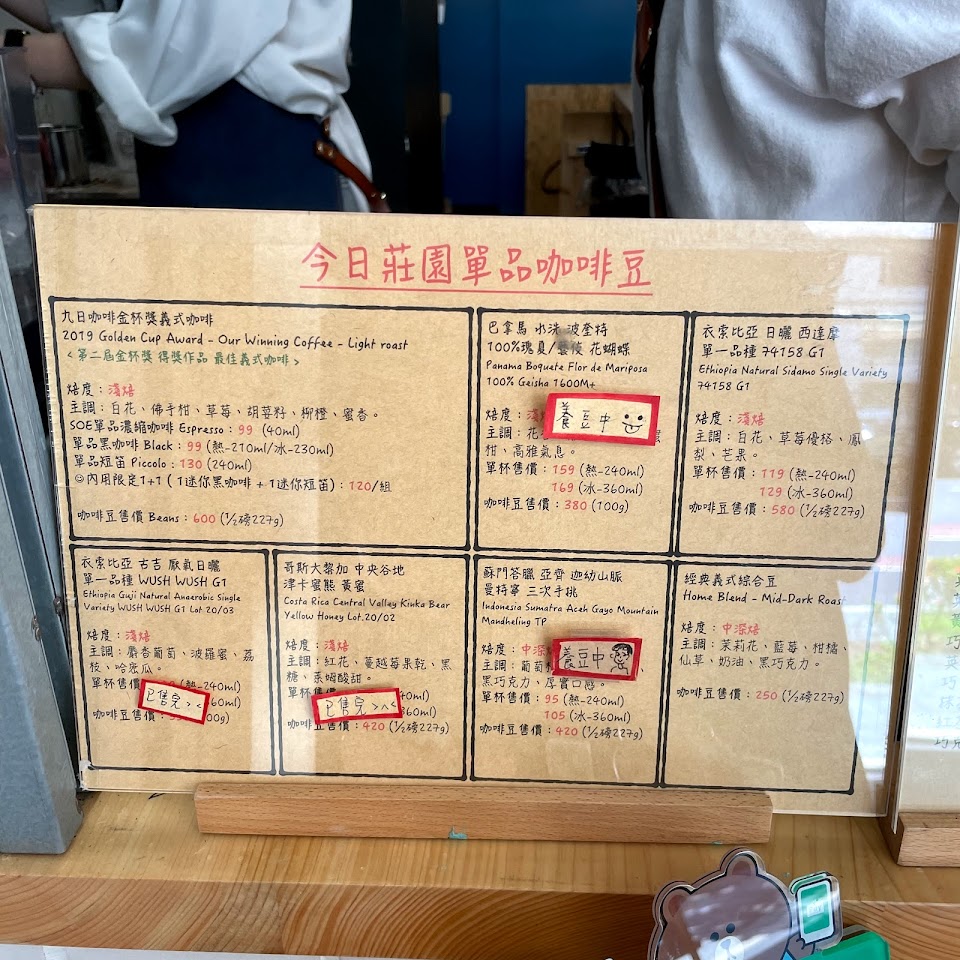 今日莊園單品咖啡豆
九日咖啡金杯獎義式咖啡
2019 Golden Cup Award - Our Winning Coffee - Light roast
<第二屆金杯獎 得獎作品 最佳義式咖啡>
焙度：淺焙
主調：白花、佛手柑、草莓、胡荽籽、柳橙、蜜香。
SOE單品濃縮咖啡 Espresso：99 (40ml)
單品黑咖啡 Black：99 (熱-210ml/冰-230ml)
單品短笛 Piccolo：130 (240ml)
☺內用限定1+1 ( 1迷你黑咖啡 + 1迷你短笛)：120/組
咖啡豆售價 Beans：600 (1/2磅227g)
巴拿馬 水洗 波奎特
100%瑰夏/藝伎 花蝴蝶
Panama Boquete Flor de Mariposa
100% Geisha 1600M+
焙度：淺
養豆中
主調：花
柑、高雅氣息。
單杯售價：159 (熱-240ml)
169 (冰-360ml)
咖啡豆售價：380 (100g)
衣索比亞 日曬 西達摩
單一品種 74158 G1
Ethiopia Natural Sidamo Single Variety
74158 G1
焙度：淺焙
主調：白花、草莓優格、鳳
梨、芒果。
單杯售價：119 (熱-240ml)
129 (冰-360ml)
咖啡豆售價：580 (1/2磅227g)
衣索比亞 古吉 厭氧日曬
單一品種 WUSH WUSH G1
Ethiopia Guji Natural Anaerobic Single
Variety WUSH WUSH G1 Lot.20/03
焙度：淺焙
主調：麝香葡萄、波羅蜜、荔
枝、哈密瓜。
單杯售 (熱-240ml)
已售完 >< 60ml)
咖啡豆售價 00g)
哥斯大黎加 中央谷地
津卡蜜熊 黃蜜
Costa Rica Central Valley Kinka Bear
Yellow Honey Lot.20/02
焙度：淺焙
主調：紅花、蔓越莓果乾、黑
糖、萊姆酸甜。
單杯售 40ml)
已售完 >^< 360ml)
咖啡豆售價：420 (1/2磅227g)
蘇門答臘 亞齊 迦幼山脈
曼特寧 三次手挑
Indonesia Sumatra Aceh Gayo Mountain
Mandheling TP
焙度：中深
養豆中
主調：葡萄
黑巧克力、厚實口感。
單杯售價：95 (熱-240ml)
105 (冰-360ml)
咖啡豆售價：420 (1/2磅227g)
經典義式綜合豆
Home Blend - Mid-Dark Roast
焙度：中深焙
主調：茉莉花、藍莓、柑橘、
仙草、奶油、黑巧克力。
咖啡豆售價：250 (1/2磅227g)